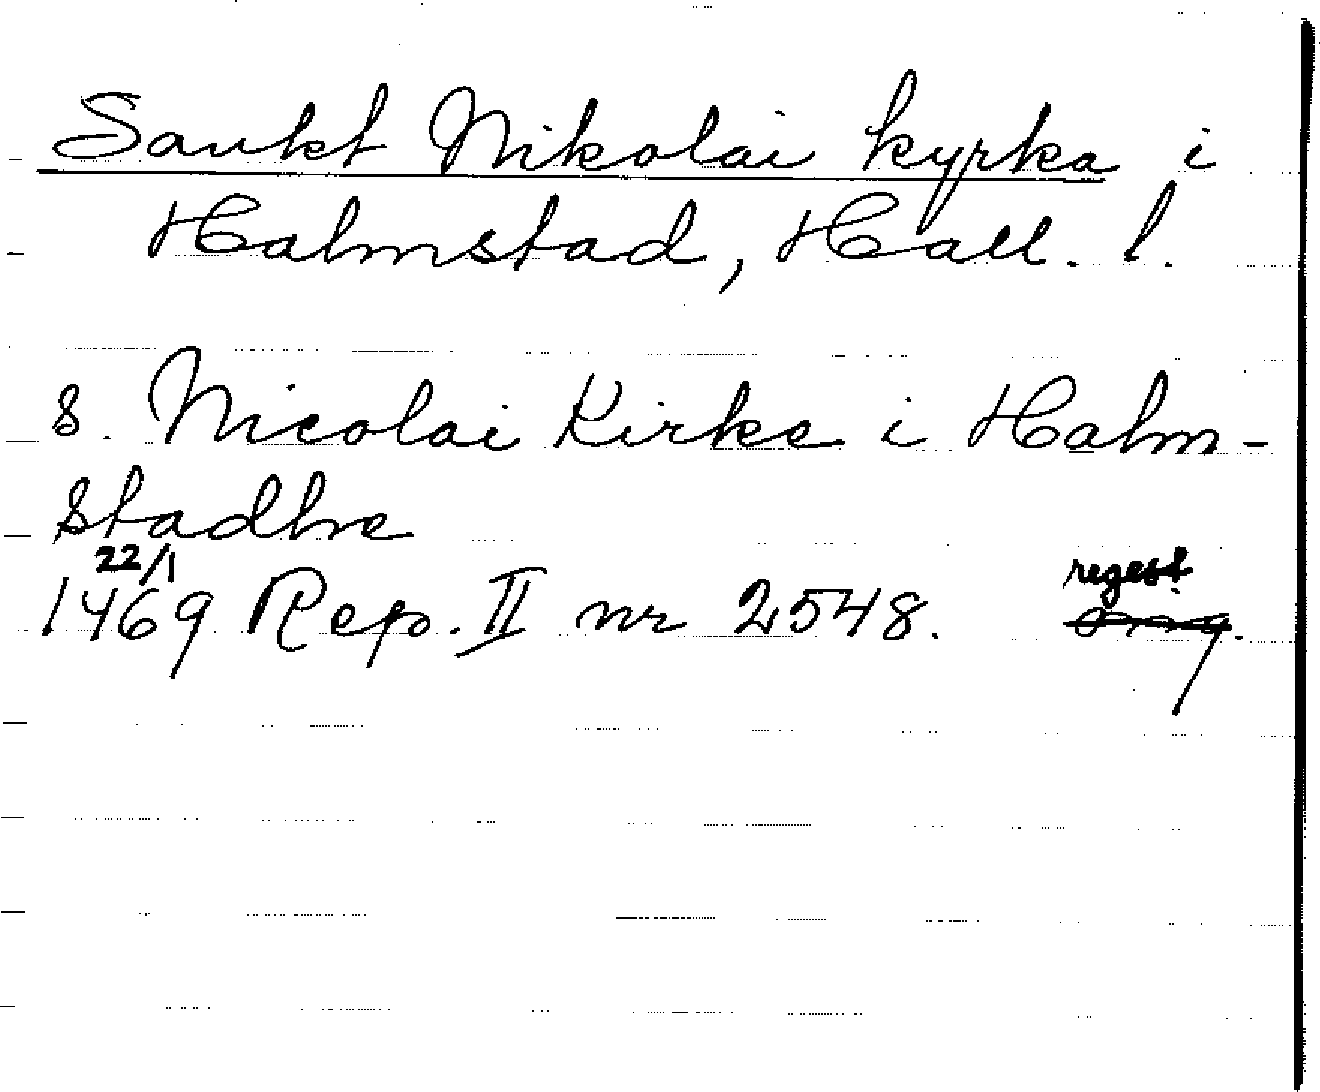 Sankt Nikolai kyrka i
Halmstad, Hall. l.
S. Nicolai Kirke i Halm-
stadhe
22/1
1469 Rep. II nr 2548. regest.